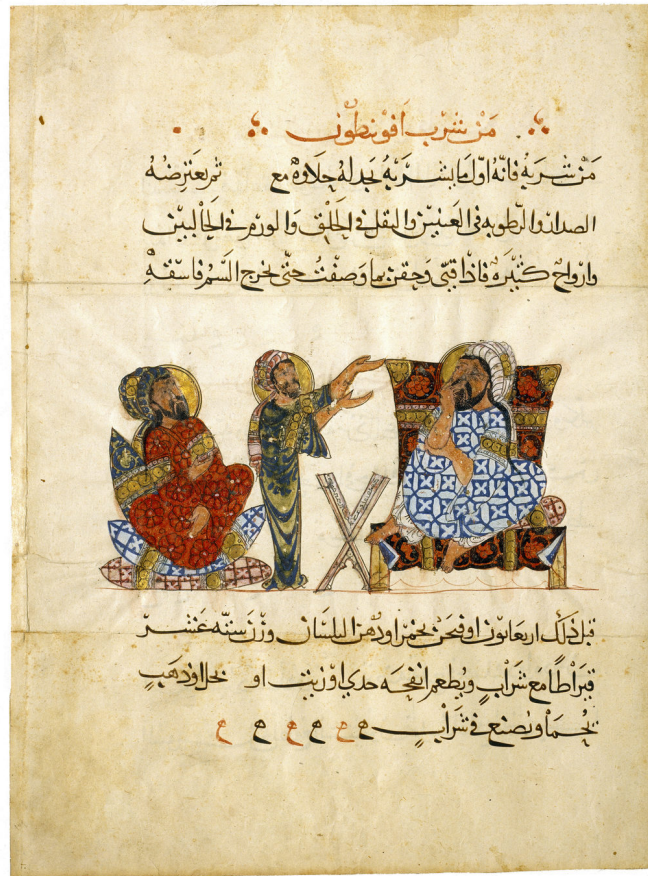 من شرب افونيطون
من شربه فانه اول ما يشربه يجد له حلاوة مع ثم يعترضه
الصداع والرطوبة فى العينين والثقل فى الحلق والورم فى الحالبين
وارواح كثيرة فاذا قيى وحقن بما وصفت حتى يخرج السم فاسقه
قبل ذلك اربعا بخمر اودهن البلسان وزن ستة عشر
قيراطا مع شراب ويطعم انفحه جدى اوزيت او بخل اوذهب
يحما ويصنع فى شراب ه ه ه ه ه ه